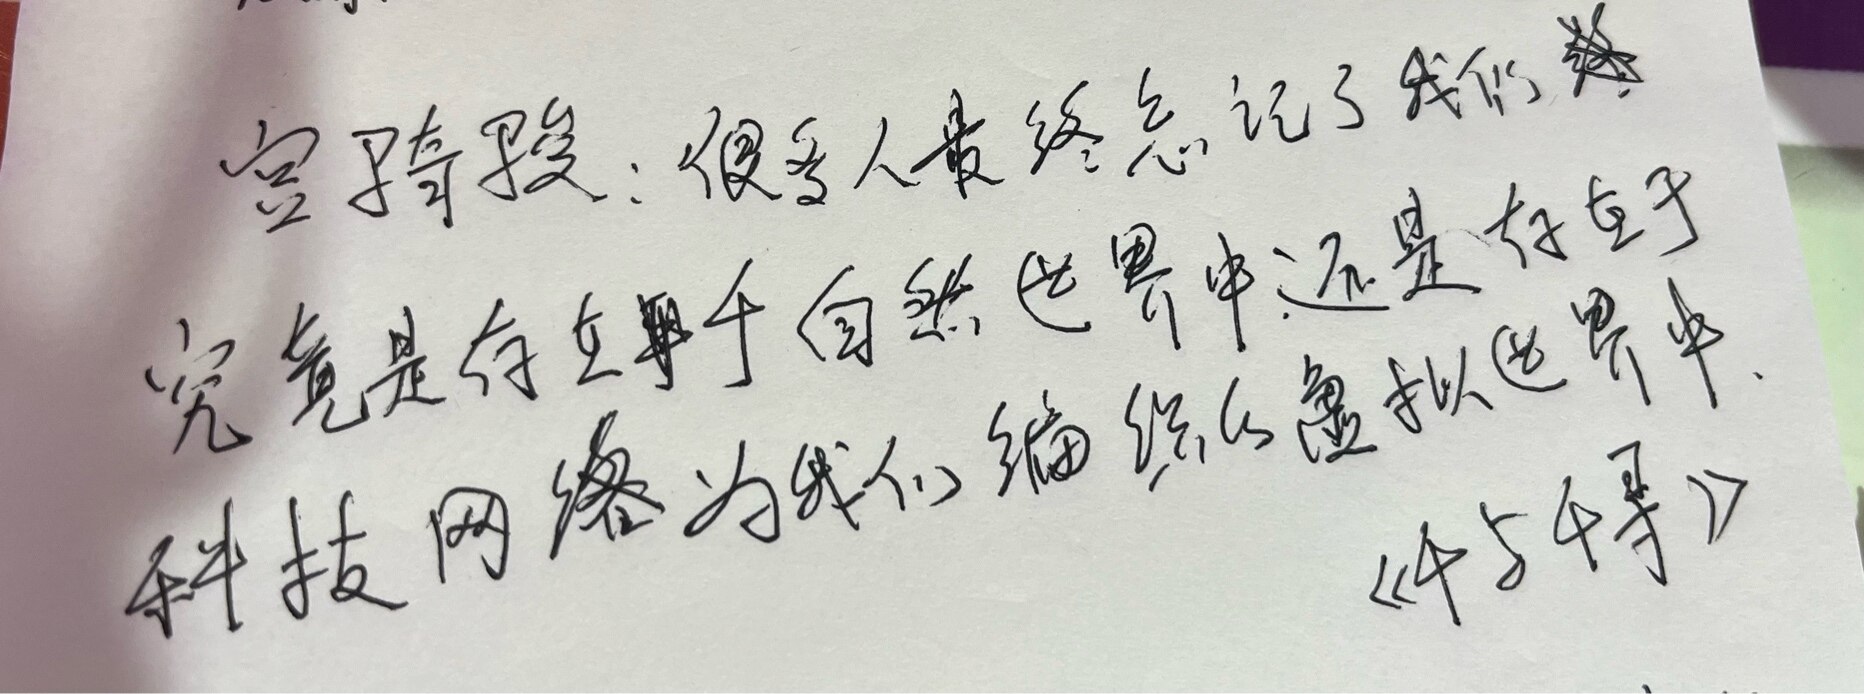 宫骑骏：很多人最终忘记了我们
究竟是存在于自然世界中还是存在于
科技网络为我们编织的虚拟世界中.
《千与千寻》